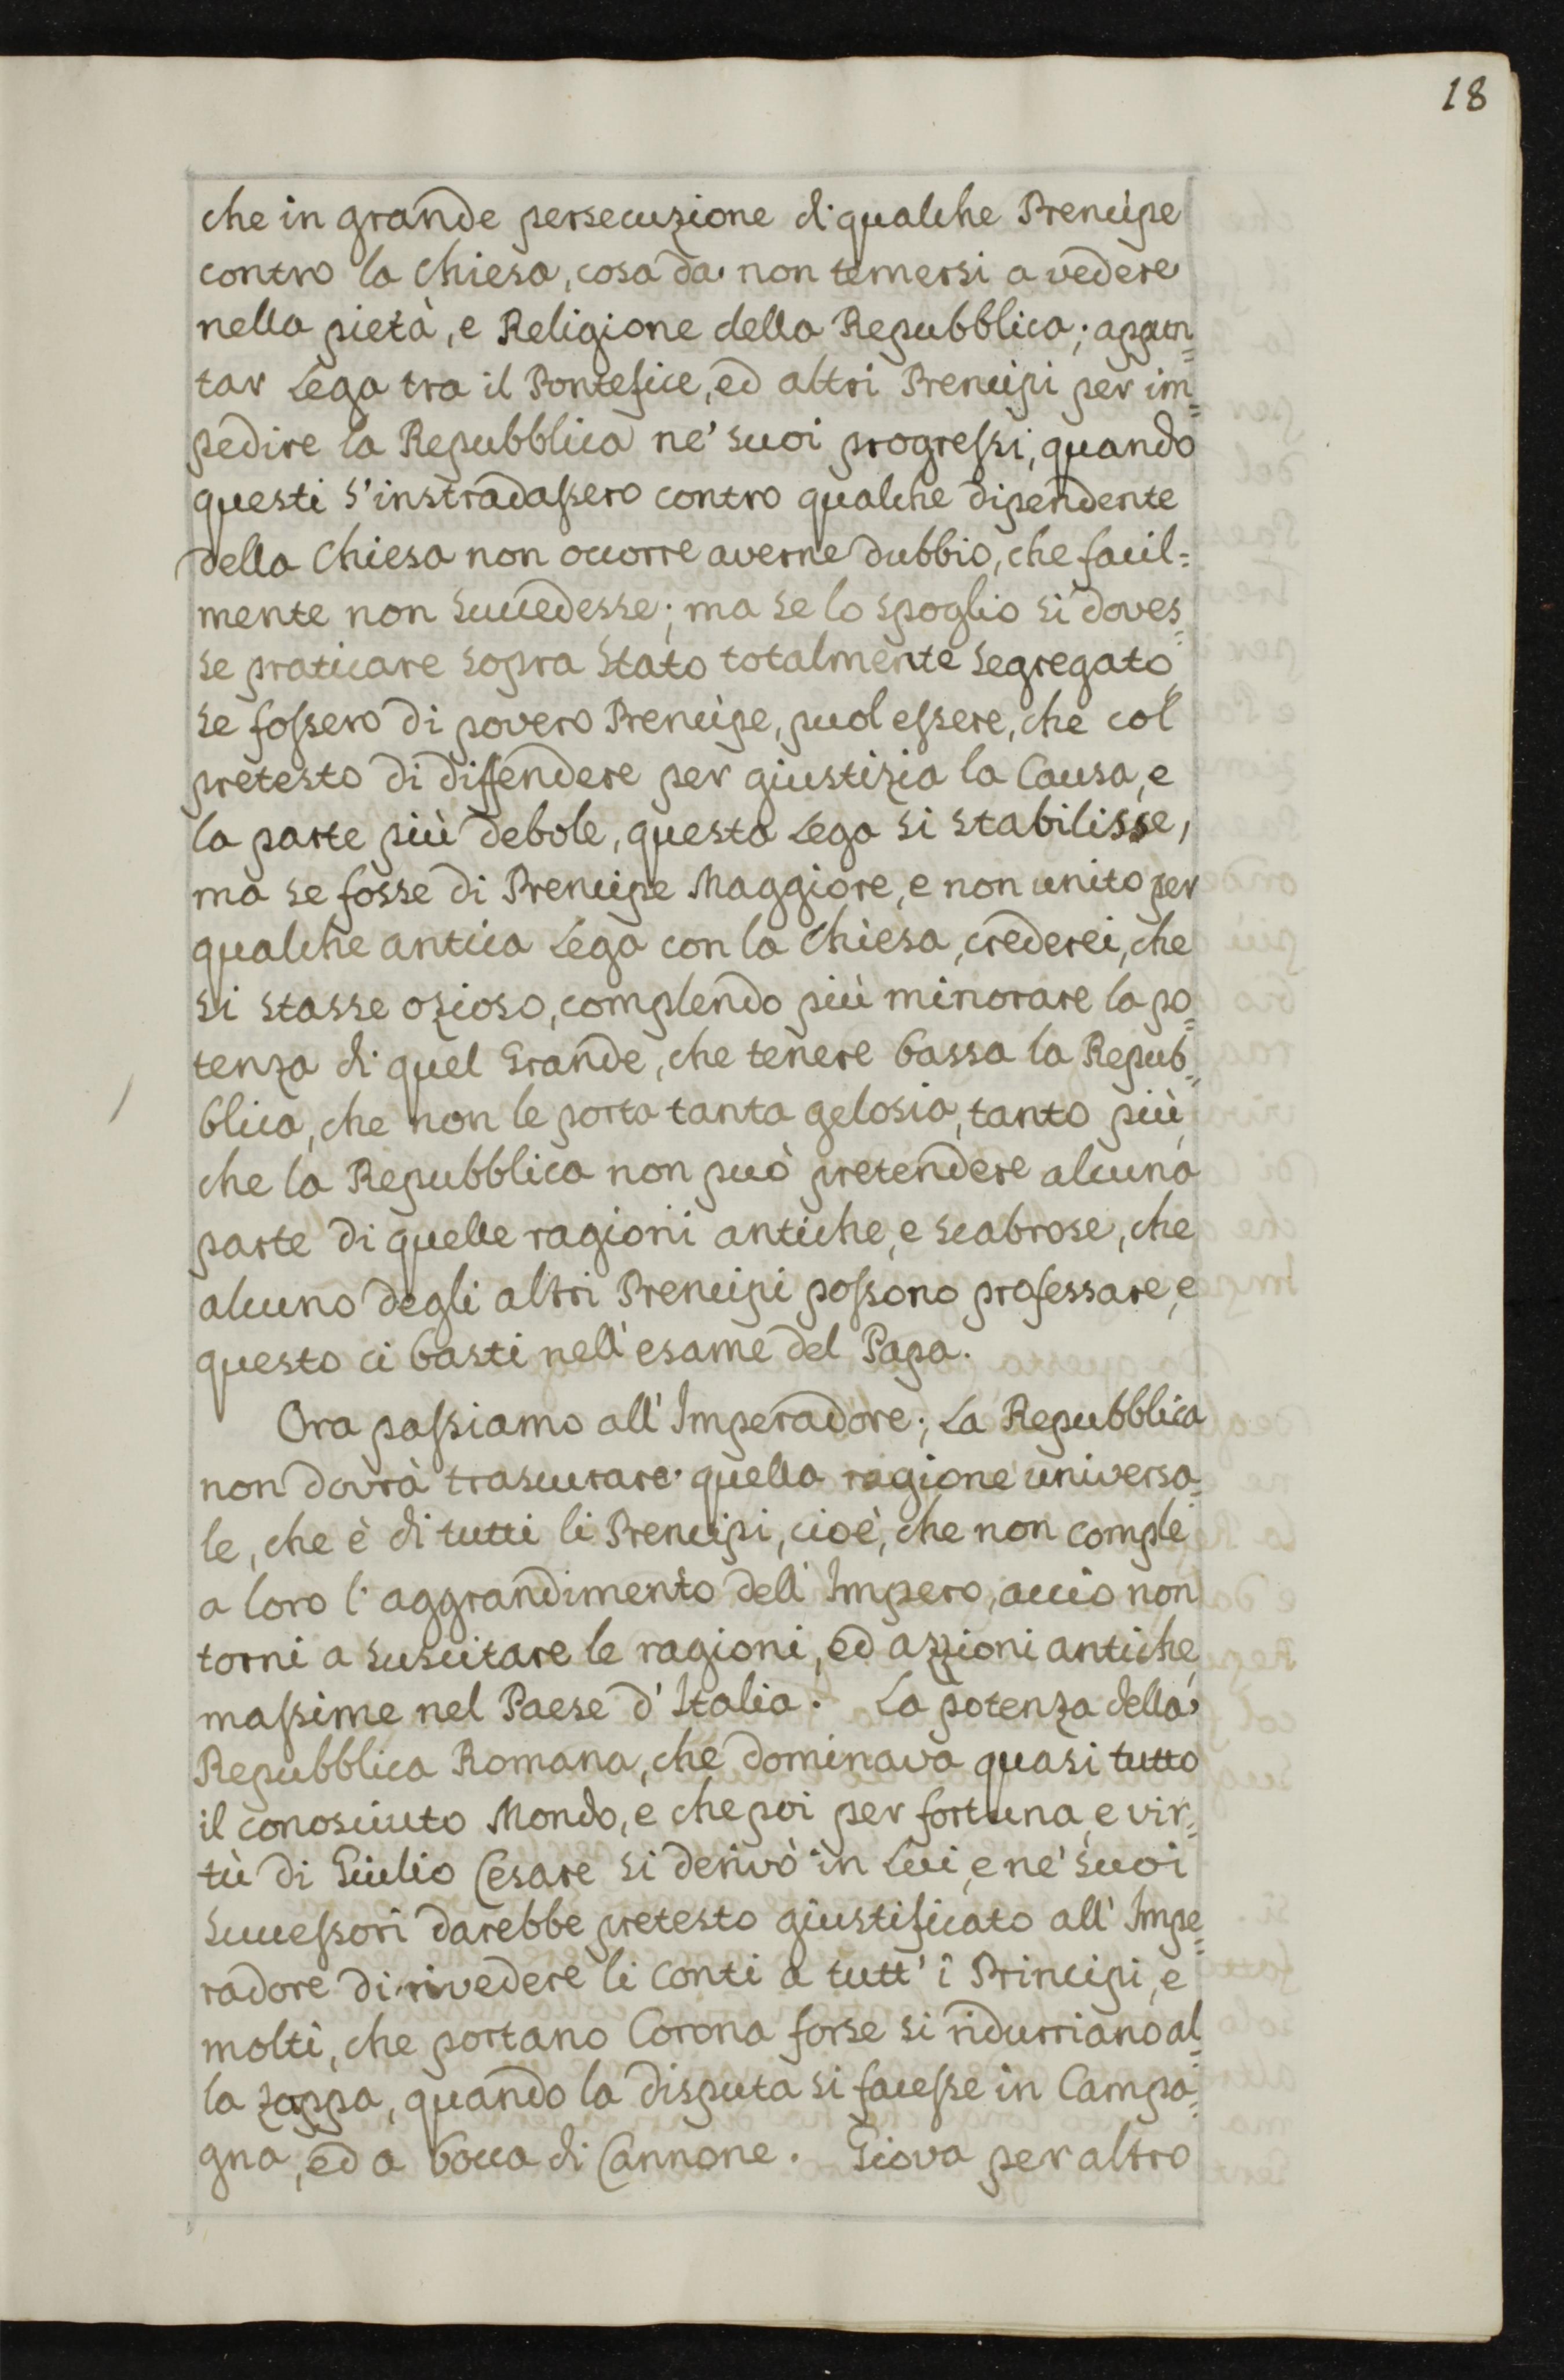 18
che in grande persecuzione di qualche Prencipe
contro la Chiesa, cosa da non temersi a vedere
nella pietà, e Religione della Repubblica; appun=
tar Lega tra il Pontefice, ed altri Prencipi per im=
pedire la Repubblica ne' suoi progreſsi, quando
questi s'instradaſsero contro qualche dipendente
della Chiesa non occorre averne dubbio, che facil=
mente non succedesse; ma se lo spoglio si doves=
se praticare sopra Stato totalmente segregato
se foſsero di povero Prencipe, puol eſsere, che col
pretesto di diffendere per giustizia la Causa, e
la parte più debole, questa Lega si stabilisse,
ma se fosse di Prencipe Maggiore, e non unito per
qualche antica Lega con la Chiesa, crederei, che
si stasse ozioso, complendo più minorare la po=
tenza di quel Grande, che tenere bassa la Repub=
blica, che non le porta tanta gelosia, tanto più,
che la Repubblica non può pretendere alcuna
parte di quelle ragioni antiche, e scabrose, che
alcuno degli altri Prencipi poſsono professare, e
questo ci basti nell'esame del Papa.
Ora paſsiamo all'Imperadore; La Repubblica
non dovrà trascurare quella ragione universa=
le, che è di tutti li Prencipi, cioè, che non comple
a loro l'aggrandimento dell'Impero, acciò non
torni a suscitare le ragioni, ed azzioni antiche,
maſsime nel Paese d'Italia. La potenza della
Repubblica Romana, che dominava quasi tutto
il conosciuto Mondo, e che poi per fortuna, e vir=
tù di Giulio Cesare si derivò in Lui, e ne' suoi
Succeſsori darebbe pretesto giustificato all'Impe=
radore di rivedere li conti a tutt'i Principi, e
molti, che portano Corona forse si ridurriano al=
la zappa, quando la disputa si faceſse in Campa=
gna, ed a bocca di Cannone. Giova per altro